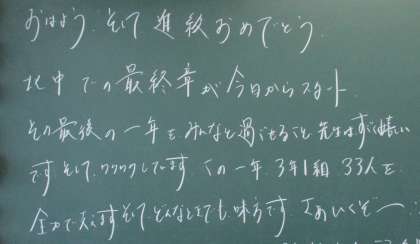 おはよう．そして進級おめでとう．
北中での最終章が今日からスタート．
その最後の一年をみんなと過ごせること 先生はすごく嬉しい
です そして、ワクワクしています．この一年、3年1組 33人を
全力で支えます そして、どんなときでも、味方です．さぁいくぞ〜